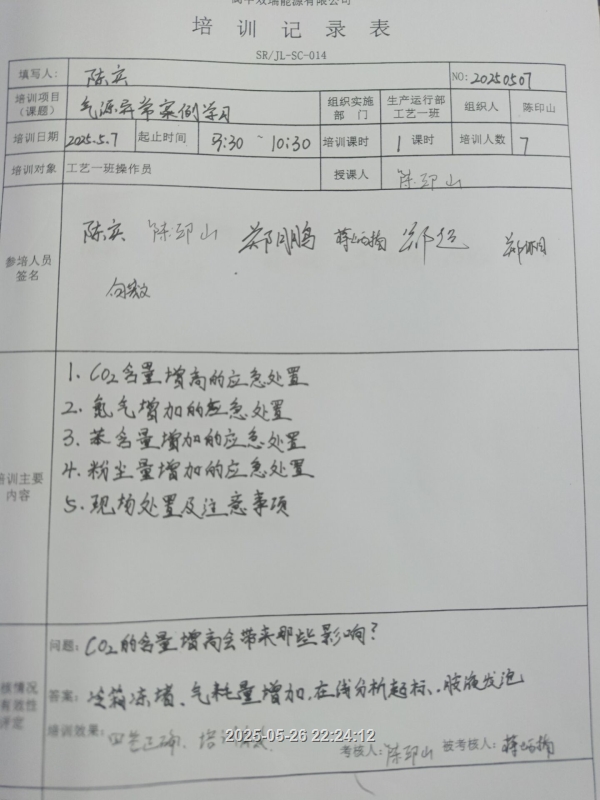 双瑞能源有限公司
培训记录表
SR/JL-SC-014
填写人： 陈实 NO:20250507
培训项目（课题） 气源异常案例学习 组织实施部门 生产运行部工艺一班 组织人 陈印山
培训日期 2025.5.7 起止时间 9:30 ~ 10:30 培训课时 1课时 培训人数 7
培训对象 工艺一班操作员 授课人 陈印山
参培人员签名 陈实 陈印山 郑超
培训主要内容
1. CO2含量增高的应急处置
2. 氮气增加的应急处置
3. 苯含量增加的应急处置
4. 粉尘量增加的应急处置
5. 现场处置及注意事项
问题: CO2的含量增高会带来那些影响?
答案: 冷箱冻堵、气耗量增加、在线分析超标、胺液发泡
培训效果: 回答正确、培训有效
考核人: 陈印山 被考核人:
2025-05-26 22:24:12